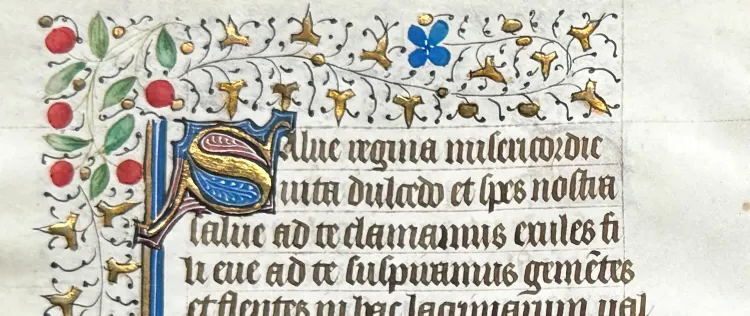 Salue regina misericordie
uita dulcedo et spes nostra
salue ad te clamamus exules fi
li eue ad te suspiramus gemẽtes
et flentes in hac lacrimarum ual